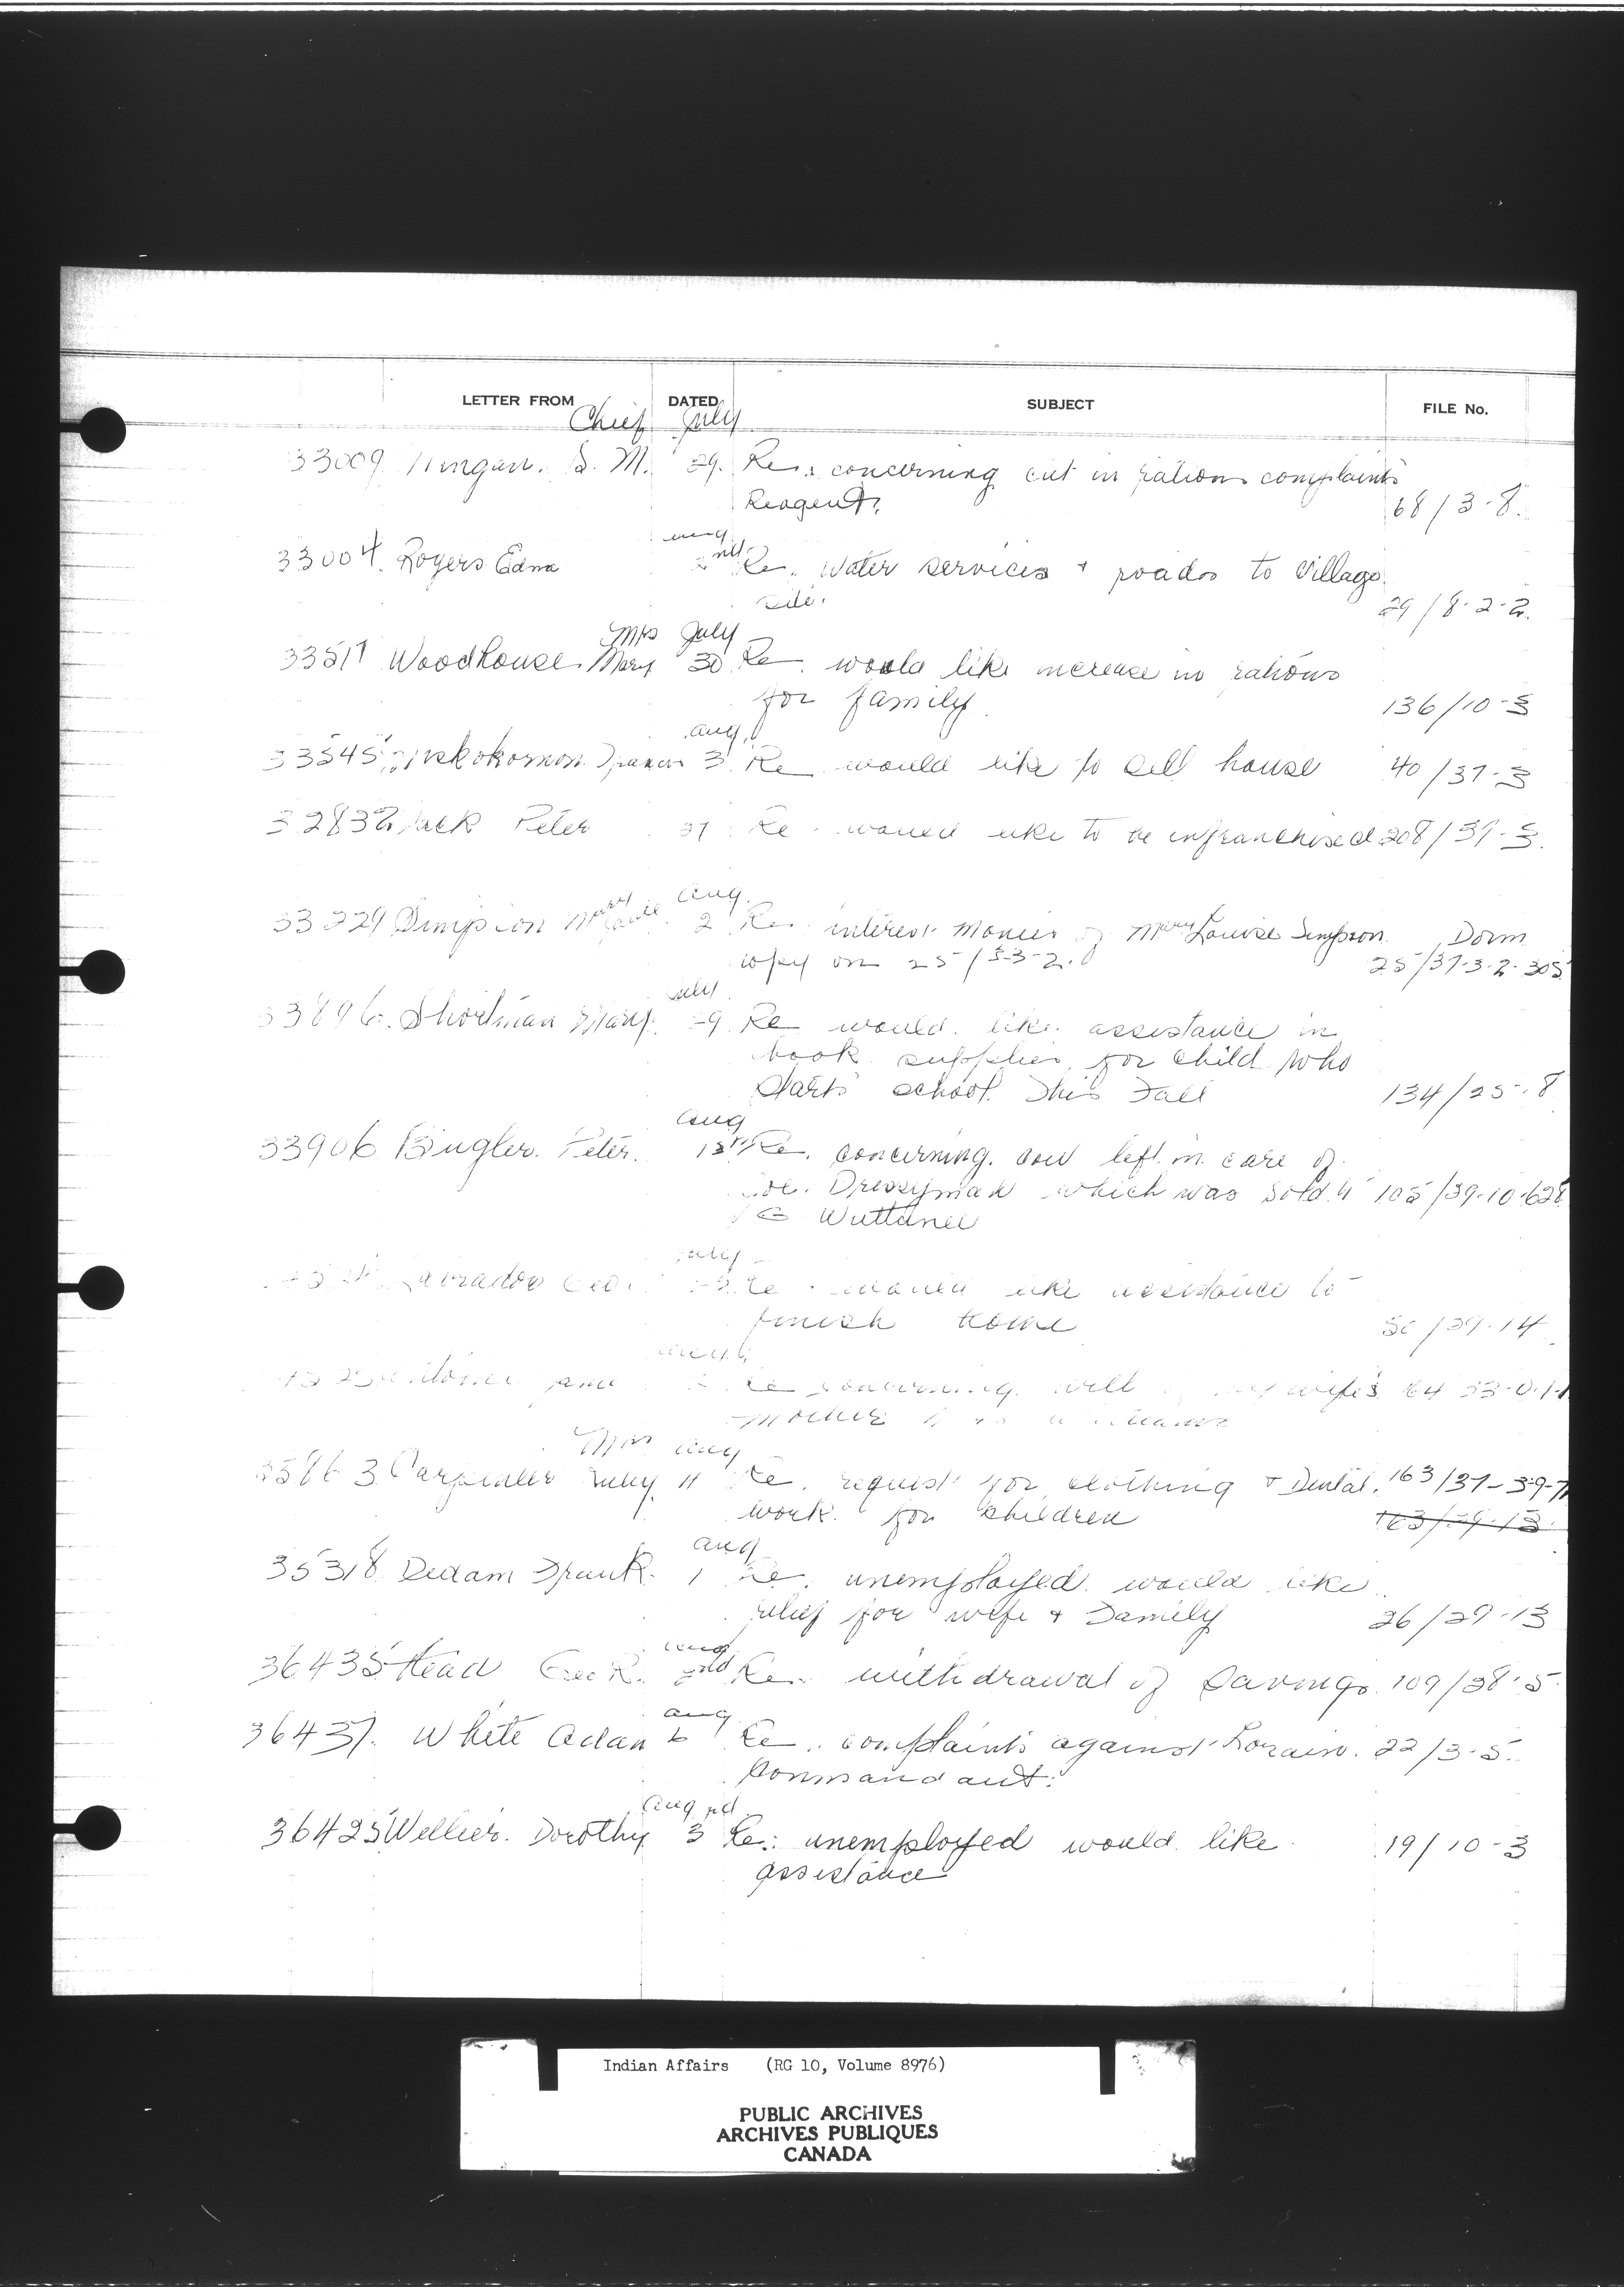 LETTER FROM DATED SUBJECT FILE No.
Chief July
33009 S. M. 29. Re: concerning cut in rations complaints
68/3-8.
33004. Rogers Edna 2nd Re. Water services + roads to Village
site. 29/8-2-2.
Mrs July
33517 Woodhouse Mary 30 Re. would like increase in rations
for family 136/10-3
Aug.
33545 3 Re would like to sell house 40/37-3
32832 Jack Peter 27 Re. would like to be infranchised 208/39-3.
Aug.
33229 Simpson Mary 2 Re. interest monies of Mary Louise Simpson. Dorm
copy on 25/3-3-2. 25/37-3-2-305
July
33896. Shortman Mary. Re would like assistance in
book supplies for child who
starts school this Fall 134/25-8
Aug
33906 Bugler. Peter. Re. concerning cow left in care of
Dressyman which was sold 105/39-10-628
Wuttunee
July
Labrador Re. would like assistance to
finish home 29-14
Re concerning will wife's
mother
Mrs Aug
Carpenter Ruby 11 Re. request for clothing + Dental, 163/37-
work for children
Aug
35318 Dedam Frank. 1 Re. unemployed would like
relief for wife + Family 26/29-13
Aug
36435 Head Geo R. Re. withdrawal of Savings 109/38-5
Aug
36437. White Adam 6 Re. complaints against 22/3-5.
Commandant.
Aug rd
36425 Dorothy 3 Re: unemployed would like 19/10-3
assistance
Indian Affairs (RG 10, Volume 8976)
PUBLIC ARCHIVES
ARCHIVES PUBLIQUES
CANADA